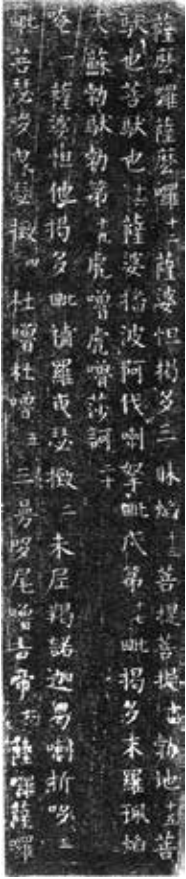 薩麽囉薩麽囉十二薩婆怛揭多三昧焰十三菩提菩提十四勃地十五菩
馱也菩馱也十六薩婆播波阿伐喇拏毗戍第十七毗揭多末羅珮焰
大蘇勃馱勃第十九虎嚕虎嚕莎訶二十
唵一薩婆怛他揭多毗鏀羅曳瑟撠二末尼羯諾迦曷喇折哆三
毗菩瑟哆曳瑟撠四杜嚕杜嚕五三曼哆尾嚕吉帝六薩囉薩囉